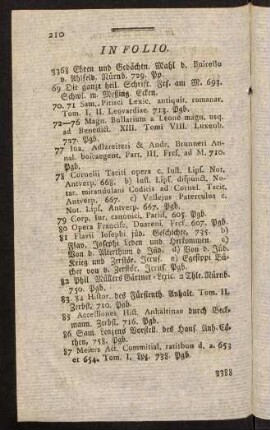 210
IN FOLIO.
3368 Ehren und Gedächtn. Mahl d.
v. Nürnb. 729. Pp.
69 Die ganze heil. Schrift. Frf. am M. 693.
Schwl. m. Meßing. Ecken.
70. 71 Sam. Pitisci Lexic. antiquit. romanar.
Tom. I. II. Leovardiae. 713. Pgb.
72—76 Magn. Bullarium a Leone magn. usq.
ad Benedict. XIII. Tomi VIII. Luxemb.
727. Pgb.
77 Ioa. Adlzreiters & Andr. Brunneri An-
nal. boicaegent. Part. III. Fref, ad M. 710.
Pgb.
78 Cornelii Taciti opera c. Iust. Lips. Not.
Antverp. 668. b) Iust. Lips. dispunct. No-
tar. mirandulani Codicis ad Cornel. Tacit.
Antverp. 667. c) Vellejus Paterculus c.
Not. Lips. Antverp. 667. Pgb.
79 Corp. iur. canonici, Parisf, 605. Pgb.
80 Opera Francisc. Duareni, Fref. 607. Pgb.
81 Flavii Josephi jüd. Geschichte, 735. b)
Flav. Josephi Leben und Herkommen. c)
Von d. Alterthüm d. Jüd. d) Von d. Jüd.
Krieg und Zerstör. Jerus. e) Egesippi Bü-
cher von d. Zerstör. Jerus. Pgb.
82 Phil. Müllers Gärtner-Lexic. 2 Thle. Nürnb.
750. Pgb.
83. 84 Histor. des Fürstenth. Anhalt. Tom. II.
Zerbst. 710. Pgb.
85 Accessiones Hist. Anhaltinae durch Beck-
mann. Zerbst. 716. Pgb.
86 Sam. Lenzens Vorstell. des Hauf. Anh. Cö-
then, 758. Pgb.
87 Meiers Act. Commitial. ratisbon d. a. 653
et 654. Tom. I. Lpz. 738. Pgb.
3388